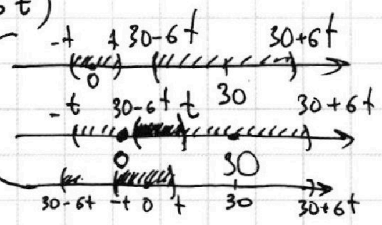 t)
-t t 30-6t 30+6t
0
-t 30-6t t 30 30+6t
0 30
30-6t -t 0 t 30 30+6t